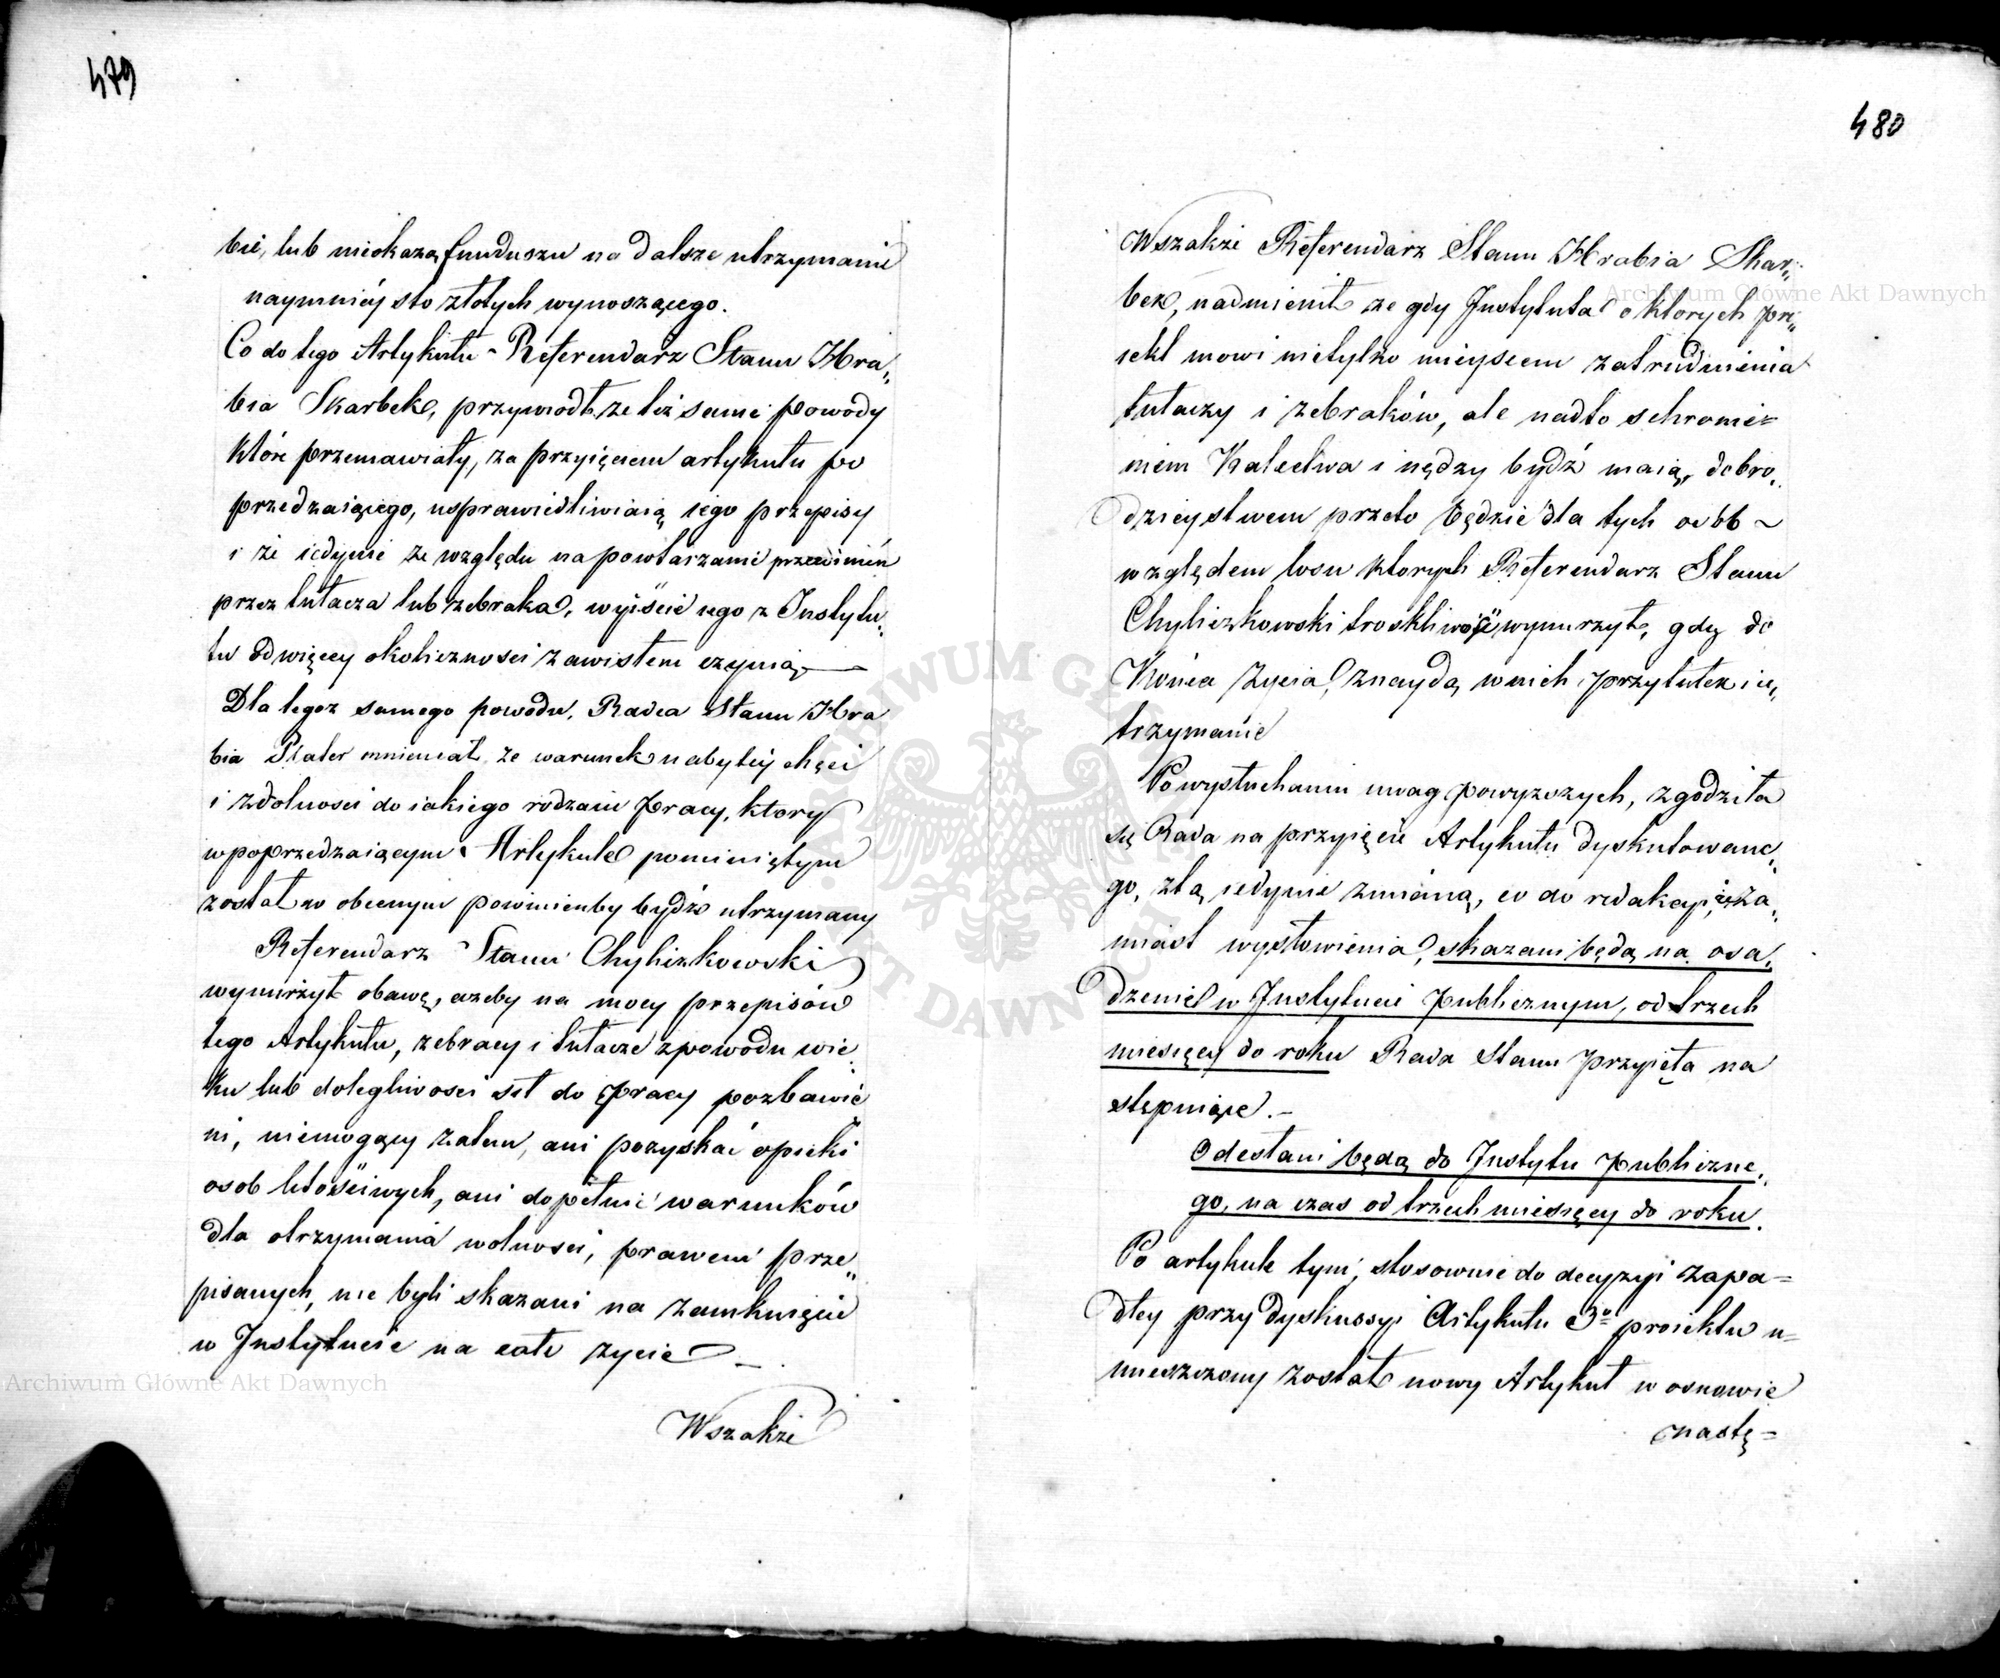 479
bie, lub nieokażą funduszu na dalsze utrzymanie
naymniéy sto złotych wynoszącego.
Co do tego Artykułu Referendarz Stanu Hra„
bia Skarbek, przywiodł, że też same powody
które przemawiały, za przyięciem artykułu po
przedzaiącego, usprawiedliwiaią iego przepisy
i że iedynie ze względu na powtarzanie przewinień
przez tułacza lub żebraka, wyiście iego z Instytu„
tu od więcey okoliczności zawisłem czynią
Dla tegoż samego powodu, Radca Stanu Hra
bia Plater mniemał, że warunek nabytey chęci
i zdolności do iakiego rodzaiu pracy, ktory
w poprzedzaiącym Artykule pominiętym
został w obecnym powinienby bydź utrzymany
Referendarz Stanu Chyliczkowski
wynurzył obawę, ażeby na mocy przepisów
tego Artykułu, żebracy i tułacze z powodu wie
ku lub dolegliwości sił do pracy pozbawie
ni, niemogący zatem, ani pozyskać opieki
osob litościwych, ani dopełnić warunków
dla otrzymania wolności, prawem prze„
pisanych, nie byli skazani na zamknięcie
w Instytucie na całe życie
Wszakże
480
Wszakże Referendarz Stanu Hrabia Skar„
bek, nadmienił że gdy Instytuta o ktorych pro„
iekt mowi nietylko mieyscem zatrudnienia
tułaczy i żebraków, ale nadto schronie=
niem Kalectwa i nędzy bydź maią, dobro„
dzieystwem przeto będzie dla tych osób
względem losu ktorych Referendarz Stanu
Chyliczkowski troskliwość wynurzył, gdy do
Końca życia, znaydą w nich przytułek i u„
trzymanie
Po wysłuchaniu uwag powyższych, zgodziła
się Rada na przyięcie Artykułu dyskutowane„
go, z tą iedynie zmianą, co do redakcyi, iż za„
miast wysłowienia, skazani będą na osa„
dzenie w Instytucie publicznym, od trzech
miesięcy do roku Rada Stanu przyięła na
stępuiące.
Odesłani będą do Instytu publiczne„
go, na czas od trzech miesięcy do roku.
Po artykule tym, stosownie do decyzyi zapa=
dłey przy dyskussyi Artykułu 3º proiektu u=
mieszczony został nowy Artykuł w osnowie
nastę=
Archiwum Główne Akt Dawnych
Archiwum Główne Akt Dawnych
ARCHIWUM GŁÓWNE AKT DAWNYCH